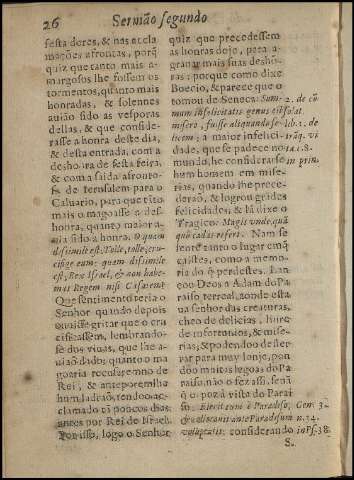 26 Sermão segundo
festa dores, & nas accla
mações afrontas, porq̃
quiz que tanto mais a-
margosos lhe fossem os
tormentos, quanto mais
honradas, & solennes
auião sido as vesporas
dellas, & que conside-
rasse a honra deste dia,
& desta entrada, com a
deshonra de sesta feira,
& com a saida afronto-
sa de Ierusalem para o
Caluario, para que tãto
mais o magoasse a des-
honra, quanto maior a-
uia sido a honra. O quam
dissimile est, Tolle, tolle, cru-
cifige eum: quam dissimile
est, Rex Israel, & non habe-
mus Regem nisi Cæsarem?
Que sentimento teria o
Senhor quando depois
ouuisse gritar que o cru
cificassem, lembrando-
se dos viuas, que lhe a-
uião dado; quanto o ma
goaria recusaremno de
Rei, & anteporem lhe
hum ladraõ, tendoo ac-
clamado vi poucos dias
antes por Rei de Israel.
Por isso, logo o Senhor
quiz que precedessem
as honras dojo, para a-
granar mais suas desho-
ras: porque como dixe
Boecio, & parece que o
tomou de Seneca: Sum-
mum infelicitatis genus est fo
misero, fuisse aliquando fe-
licem; a maior infelici-
dade, que se padece no
mundo, he considerarse
hum homem em mise-
rias, quando lhe prece-
deraõ, & logrou grãdes
felicidades, & lá dixe o
Tragico: Magis unde, quã
quò cadat refert. Nam se
sente tanto o lugar em q̃
caistes, como a memo-
ria do q̃ perdestes. Lan-
çou Deos a Adam do Pa
raiso terreal, aonde esta
ua senhor das creaturas,
cheo de delicias, liure
de infortunios, & mise-
rias, & podendoo dester
rar para muy longe, pon
doo muitas legoas do Pa
raiso, não o fez assi, senã
q̃ o poz á vista do Parai
so. Eiecit eum è Paradiso,
& collocauit ante Paradisum
voluptatis: considerando
S.
2. de cõ
sol at.
lib. 2. de
trãq. vi
tæ c. 8.
in prin.
Gen. 3.
n. 24.
in Ps. 38.